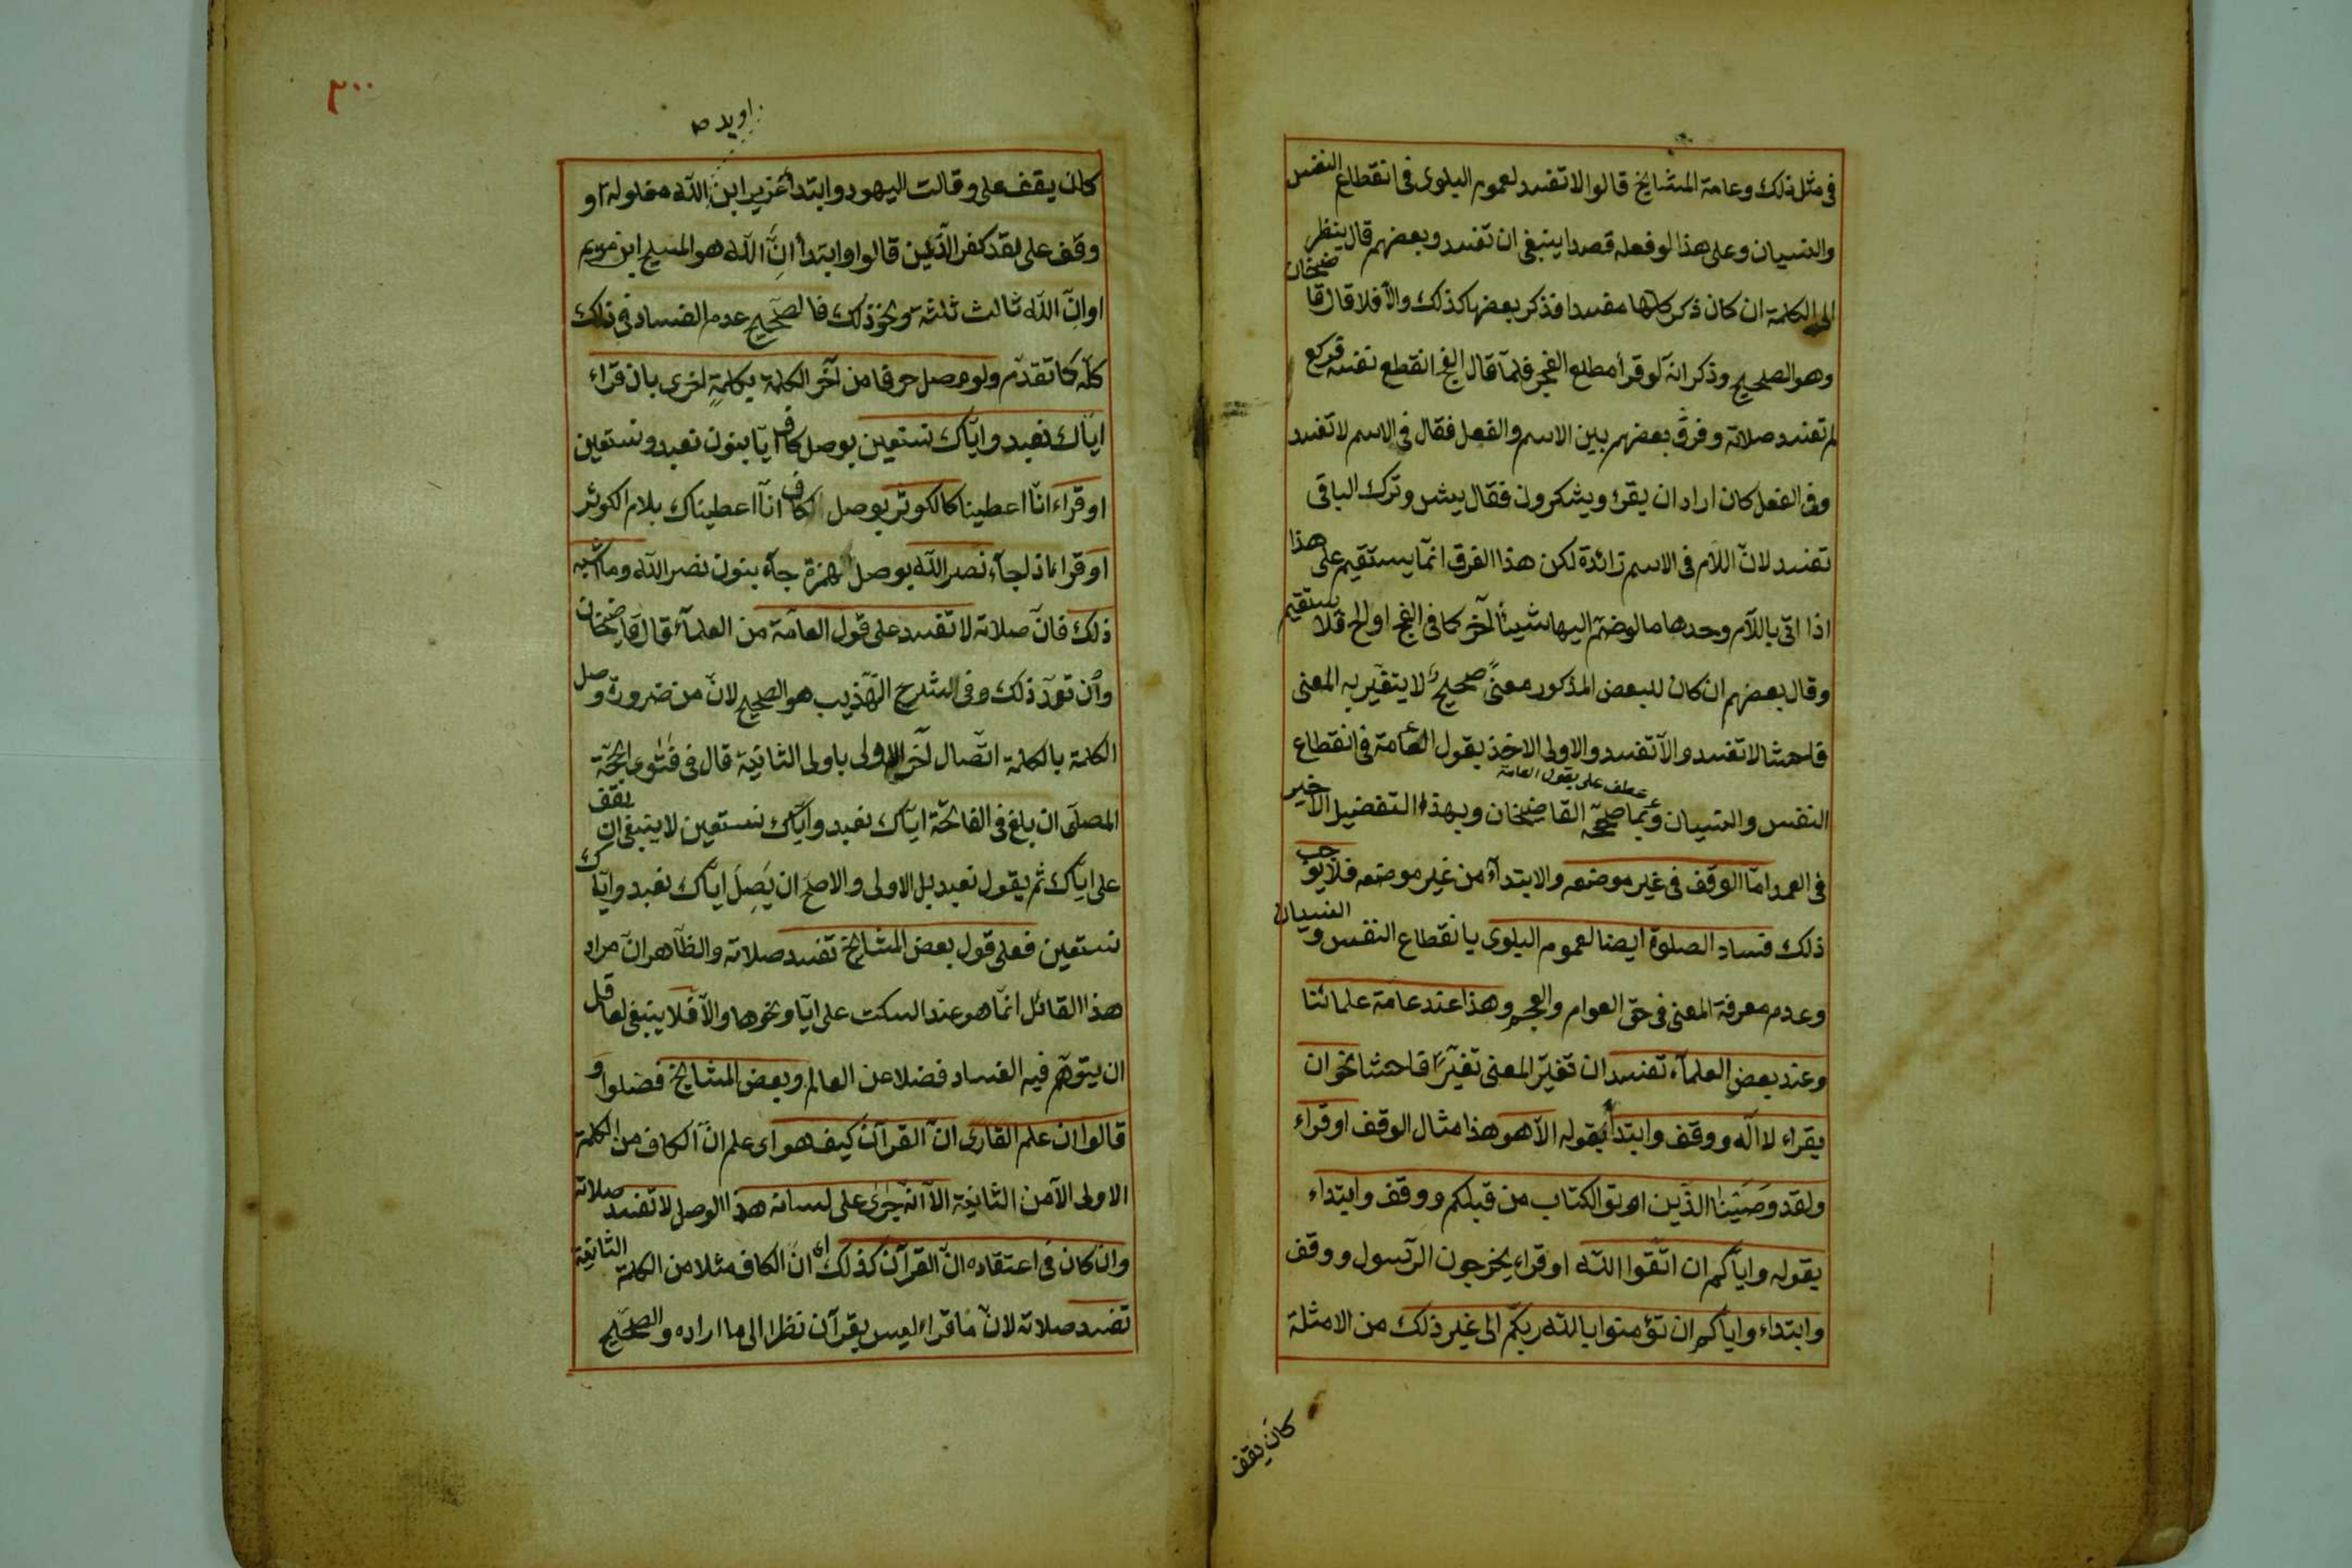 في مثل ذلك وعامة المشايخ قالوا لا تفسد لعموم البلوى في انقطاع النفس
والنسيان وعلى هذا لو فعله قصدا ينبغي ان تفسد وبعضهم قال ينظر
الى الكلمة ان كان ذكر كلها مفسدا فذكر بعضها كذلك والا فلا قال قاضيخان
وهو الصحيح وذكر انه لو قرأ مطلع الفجر فلما قال الفج انقطع نفسه فركع
لم تفسد صلاته وفرق بعضهم بين الاسم والفعل فقال في الاسم لا تفسد
وفي الفعل كان اراد ان يقرء ويشكرون فقال يش وترك الباقي
تفسد لان اللام في الاسم زائدة لكن هذا الفرق انما يستقيم على هذا
اذا اتى باللام وحدها ما لو ضم اليها شيئا آخر كما في الفج او الح فلا يستقيم
وقال بعضهم ان كان للبعض المذكور معنى صحيح لا يتغير به المعنى
فاحشا لا تفسد والا تفسد والاولى الاخذ بقول العامة في انقطاع
عطف على بقول العامة
النفس والنسيان وبما صححه القاضيخان وبهذا التفضيل الاخير
في العمد اما الوقف في غير موضعه والابتداء من غير موضعه فلا يوجب
ذلك فساد الصلوة ايضا لعموم البلوى بانقطاع النفس والنسيان
وعدم معرفة المعنى في حق العوام والعجم وهذا عند عامة علمائنا
وعند بعض العلماء تفسد ان تغير المعنى تغيرا فاحشا نحو ان
يقراء لا اله ووقف وابتدأ بقوله الا هو هذا مثال الوقف او قراء
ولقد وصينا الذين اوتوا الكتاب من قبلكم ووقف وابتداء
بقوله واياكم ان اتقوا الله او قراء يخرجون الرسول ووقف
وابتداء واياكم ان تؤمنوا بالله ربكم الى غير ذلك من الامثلة
كان يقف
٣٠٠
كان يقف على وقالت اليهود وابتدأ عزير ابن الله مغلولة او
وقف على لقد كفر الذين قالوا وابتدأ ان الله هو المسيح ابن مريم
او ان الله ثالث ثلثة ونحو ذلك فالصحيح عدم الفساد في ذلك
كله كما تقدم ولو وصل حرفا من آخر الكلمة بكلمة اخرى بان قراء
اياك نعبد واياك نستعين بوصل كاف ايا بنون نعبد ونستعين
او قراء انا اعطينا كالكوثر بوصل كاف انا اعطيناك بلام الكوثر
او قراء اذا جاء نصر الله بوصل همزة جاء بنون نصر الله وما اشبه
ذلك فان صلاته لا تفسد على قول العامة من العلماء قال قاضيخان
وان تعمد ذلك وفي الشرح التهذيب هو الصحيح لان من ضرورة وصل
الكلمة بالكلمة اتصال آخر الاولى باولى الثانية قال في فتاوى الحجة
المصلى ان بلغ في الفاتحة اياك نعبد واياك نستعين لا ينبغي ان يقف
على اياك ثم يقول نعبد بل الاولى والاصلح ان يصل اياك نعبد واياك
نستعين فعلى قول بعض المشايخ تفسد صلاته والظاهر ان مراد
هذا القائل انما هو عند السكت على ايا ونحوها والا فلا ينبغي لعاقل
ان يتوهم فيه الفساد فضلا عن العالم وبعض المشايخ فصلوا و
قالوا ان علم القارى ان القرآن كيف هو اى علم ان الكاف من الكلمة
الاولى الا من الثانية الا انه جرى على لسانه هذا الوصل لا تفسد صلاته
وان كان في اعتقاده ان القرآن كذلك اى ان الكاف مثلا من الكلمة الثانية
تفسد صلاته لان ما قراء ليس بقرآن نظرا الى ما اراده والصحيح